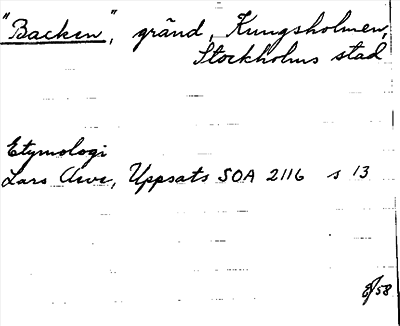 "Backen", gränd, Kungsholmen,
Stockholms stad
Etymologi
Lars Arve, Uppsats SOA 2116 s 13
E/58